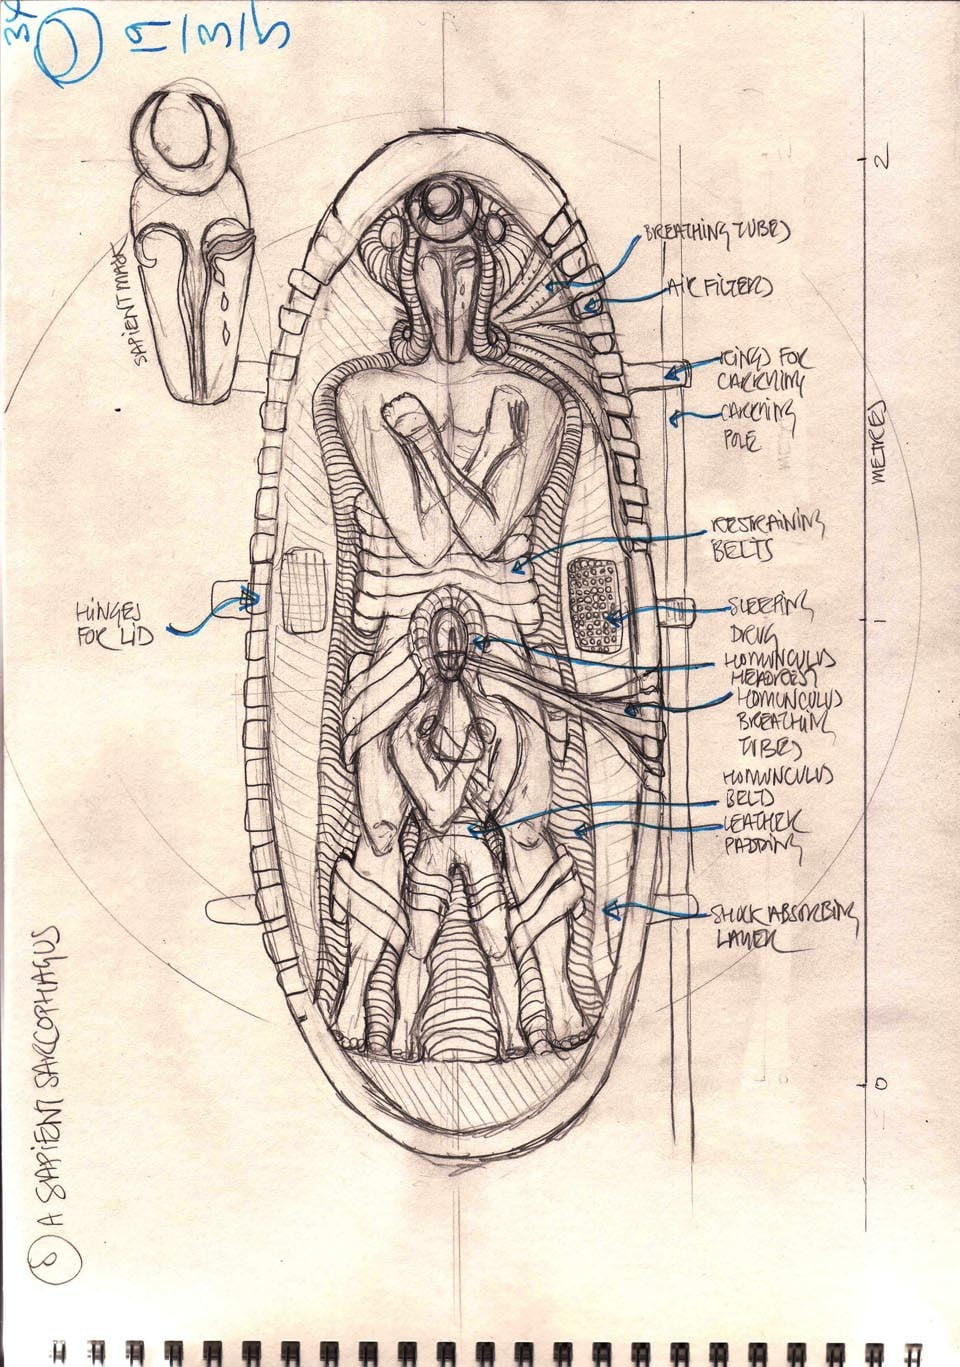 19/3/5
SAPIENT MASK
BREATHING TUBES
AIR FILTERS
RINGS FOR
CARRYING
CARRYING
POLE
RESTRAINING
BELTS
SLEEPING
DRUG
HOMUNCULUS
HEADREST
HOMUNCULUS
BREATHING
TUBES
HOMUNCULUS
BELTS
LEATHER
PADDING
SHOCK ABSORBING
LAYER
HINGES
FOR LID
2
METRES
1
0
8 A SAPIENT SARCOPHAGUS